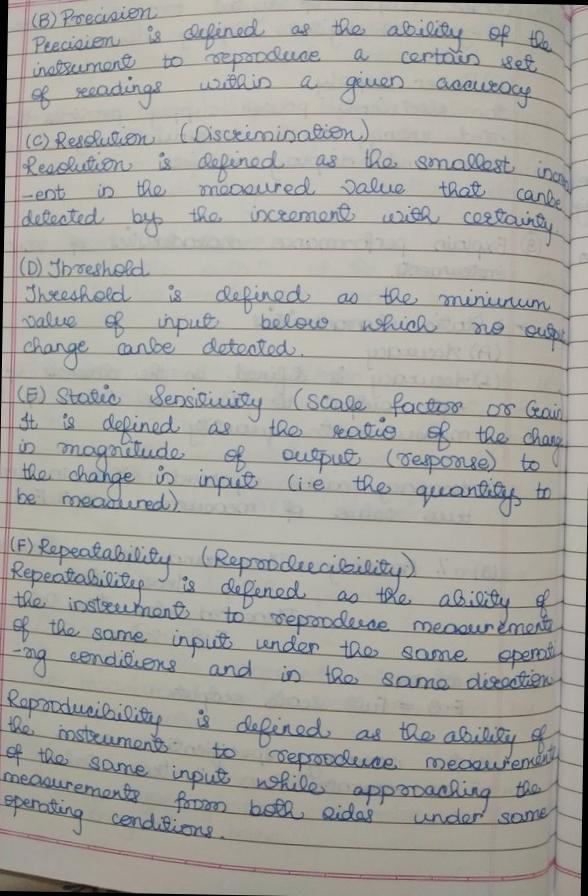 (B) Precision
Precision is defined as the ability of the
instrument to reproduce a certain set
of readings within a given accuracy
(C) Resolution (Discrimination)
Resolution is defined as the smallest increm
-ent in the measured value that canbe
detected by the increment with certainty.
(D) Threshold
Threshold is defined as the minimum
value of input below which no outpu
change canbe detected.
(E) Static Sensitivity (Scale factor or Gain
It is defined as the ratio of the change
in magnitude of output (response) to
the change in input (i.e the quantity to
be measured)
(F) Repeatability (Reproducibility)
Repeatability is defined as the ability of
the instrument to reproduce measurements
of the same input under the same operat
-ing conditions and in the same direction
Reproducibility is defined as the ability of
the instruments to reproduce measurement
of the same input while approaching the
measurements from both sides under same
operating conditions.